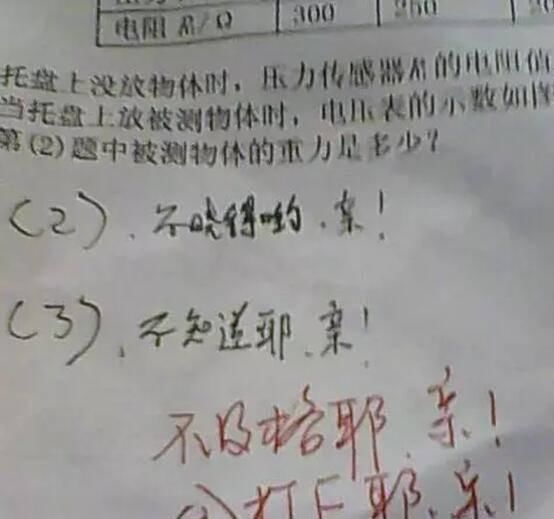 电阻 R/Ω 300 250
托盘上没放物体时，压力传感器R的电阻值
当托盘上放被测物体时，电压表的示数如
第(2)题中被测物体的重力是多少？
(2)、不晓得哟.亲！
(3)、不知道耶.亲！
不及格耶.亲！
打F耶.亲！